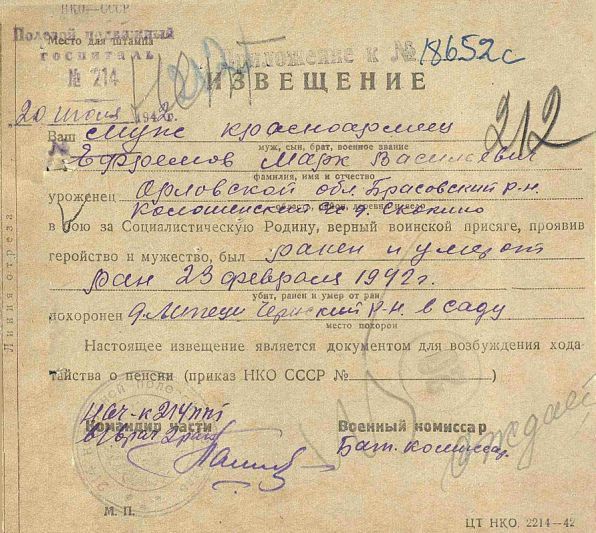 НКО—СССР
Полевой подвижный
Место для штампа
госпиталь
№ 214
Приложение к № 18652с
ИЗВЕЩЕНИЕ
20 июня 1942 г.
212
Ваш муж красноармеец
муж, сын, брат, военное звание
Ефремов Марк Васильевич
фамилия, имя и отчество
уроженец Орловской обл. Брасовский р-н.
в бою за Социалистическую Родину, верный воинской присяге, проявив
геройство и мужество, был ранен и умер от
ран 23 февраля 1942 г.
убит, ранен и умер от ран
похоронен д. Липецы Чернский р-н в саду
место похорон
Настоящее извещение является документом для возбуждения хода-
тайства о пенсии (приказ НКО СССР №)
Нач-к 214 ппг
Командир части
Военный комиссар
в/врач 2 ранга
Бат. комиссар
М. П.
ЦТ НКО. 2214—42
Линия отреза